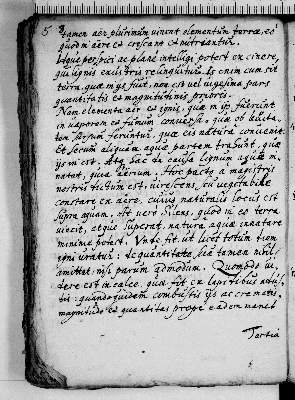 5 tamen aër plurimum vincit elementum terrae, eò
quod in aere et crescant et nutriantur.
Atque perspici ac plane intelligi potest ex cinere,
qui ignis exustris relinquitur. Is enim cum sit
terra quae in ijs fuit, non est vel vigesima pars
quantitatis et magnitudinis prioris.
Nam elementa aër et ignis, quae in ijs fuerint
in vaporem et fumum conversa, quae ob
sursum feruntur, quae eis natura convenit
et secum aliquam aquae partem trahunt, quae
ijs inest. Atq hac de causa lignum aquae in
natat, quia aërium. Hoc pacto a magistris
nostris dictum est: virescens, seu vegetabile
constare ex aere, cuius naturalis locus est
supra aquam. At vero Silex, quod in eo terra
vicit, atque superat, natura aquae innatare
minime potest. Unde fit ut licet totum
igni uratur: de quantitate sua tamen nihil
amittat nisi parum admodum. Quomodo
videre est in calce, quae fit ex lapidibus
: quandoquidem combustis ijs ac crematis,
magnitudo et quantitas prope eadem manet
Tertia